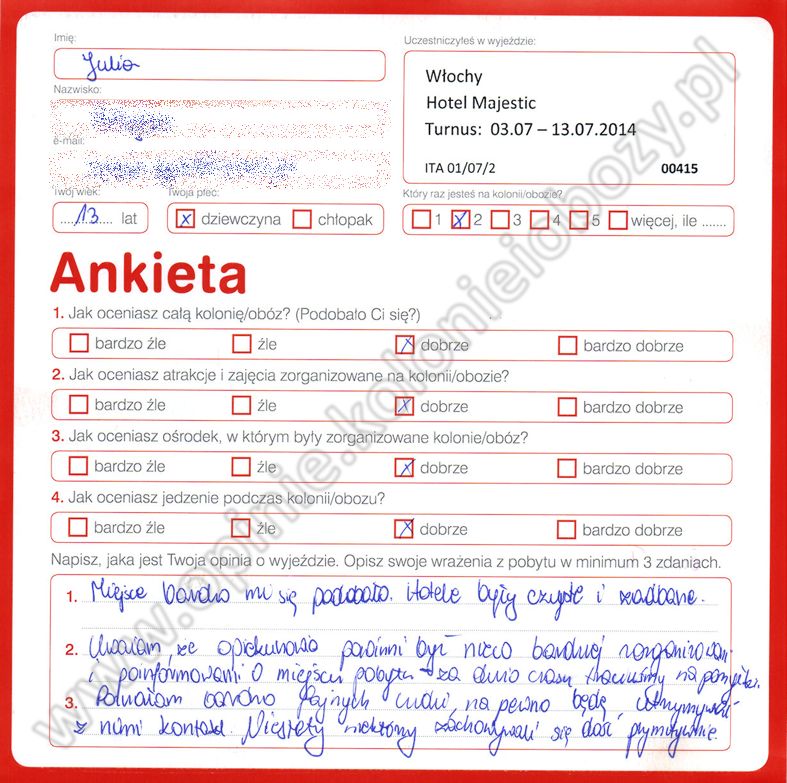 Imię:
Julia
Uczestniczyłeś w wyjeździe:
Włochy
Hotel Majestic
Turnus: 03.07 – 13.07.2014
ITA 01/07/2 00415
Nazwisko:
e-mail:
Twój wiek:
13 lat
Twoja płeć:
x dziewczyna chłopak
Który raz jesteś na kolonii/obozie?
1 x 2 3 4 5 więcej, ile .......
Ankieta
1. Jak oceniasz całą kolonię/obóz? (Podobało Ci się?)
bardzo źle źle x dobrze bardzo dobrze
2. Jak oceniasz atrakcje i zajęcia zorganizowane na kolonii/obozie?
bardzo źle źle x dobrze bardzo dobrze
3. Jak oceniasz ośrodek, w którym były zorganizowane kolonie/obóz?
bardzo źle źle x dobrze bardzo dobrze
4. Jak oceniasz jedzenie podczas kolonii/obozu?
bardzo źle źle x dobrze bardzo dobrze
Napisz, jaka jest Twoja opinia o wyjeździe. Opisz swoje wrażenia z pobytu w minimum 3 zdaniach.
1. Miejsce bardzo mi się podobało. Hotele były czyste i zadbane.
2. Uważam, że opiekunowie powinni być nieco bardziej zorganizowani
i poinformowani o miejscu pobytu - za dużo czasu traciliśmy na pomyłki.
3. Poznałam bardzo fajnych ludzi, na pewno będę utrzymywać
z nimi kontakt. Niestety niektórzy zachowywali się dość prymitywnie.
www.opinie.kolonieiobozy.pl